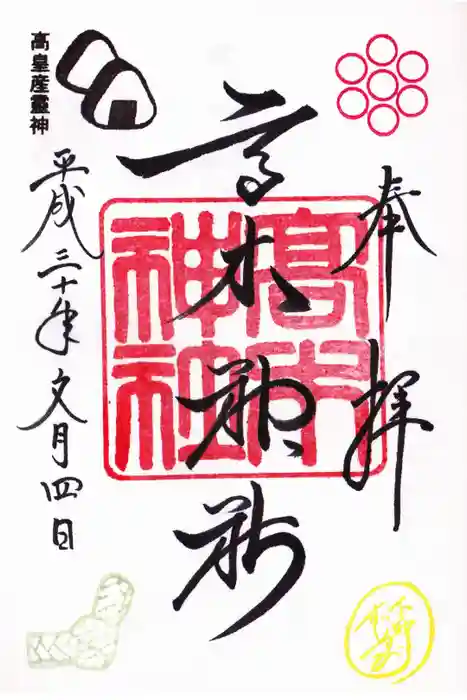 奉拝
高木神社
高木神社
高皇産靈神
平成三十年文月四日